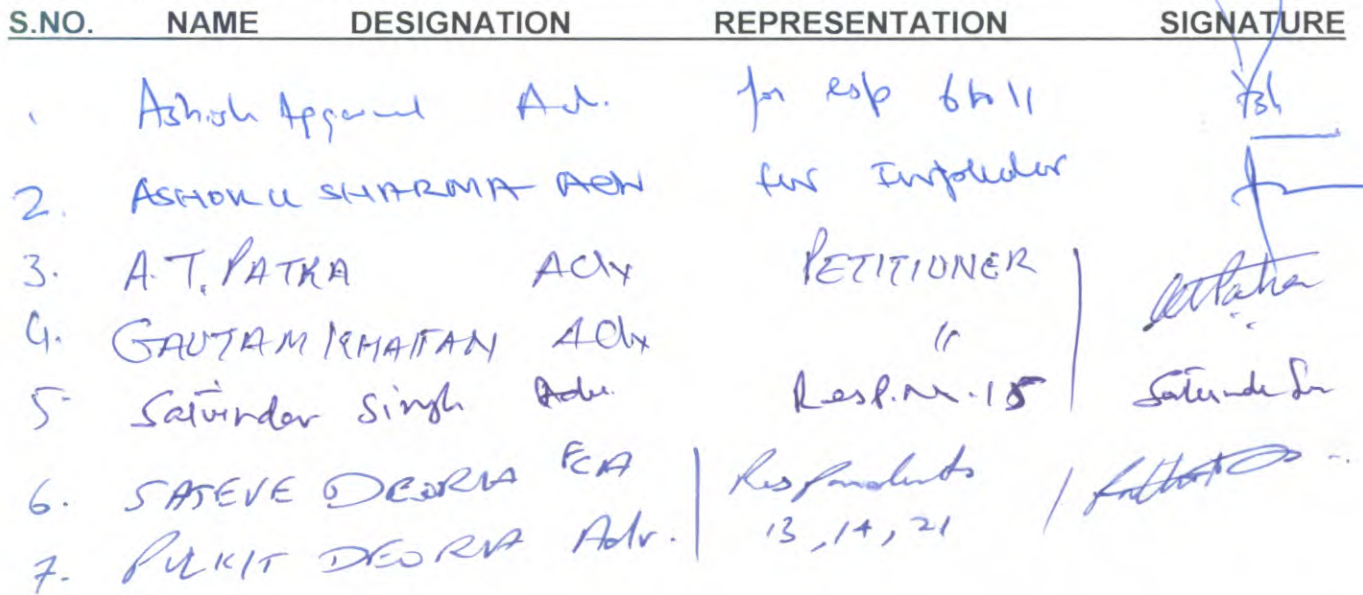 S.NO. NAME DESIGNATION REPRESENTATION SIGNATURE
1 Ashish Aggarwal Ad. for resp 6 to 11
2. ASHOK K SHARMA ADV for Impleader
3. A.T. PATRA Adv PETITIONER
4. GAUTAM KHAITAN Adv "
5 Satvinder Singh Adv. Resp. No. 15
6. SAJEVE DEORA FCA Respondents
7. PULKIT DEORA Adv. 13, 14, 21